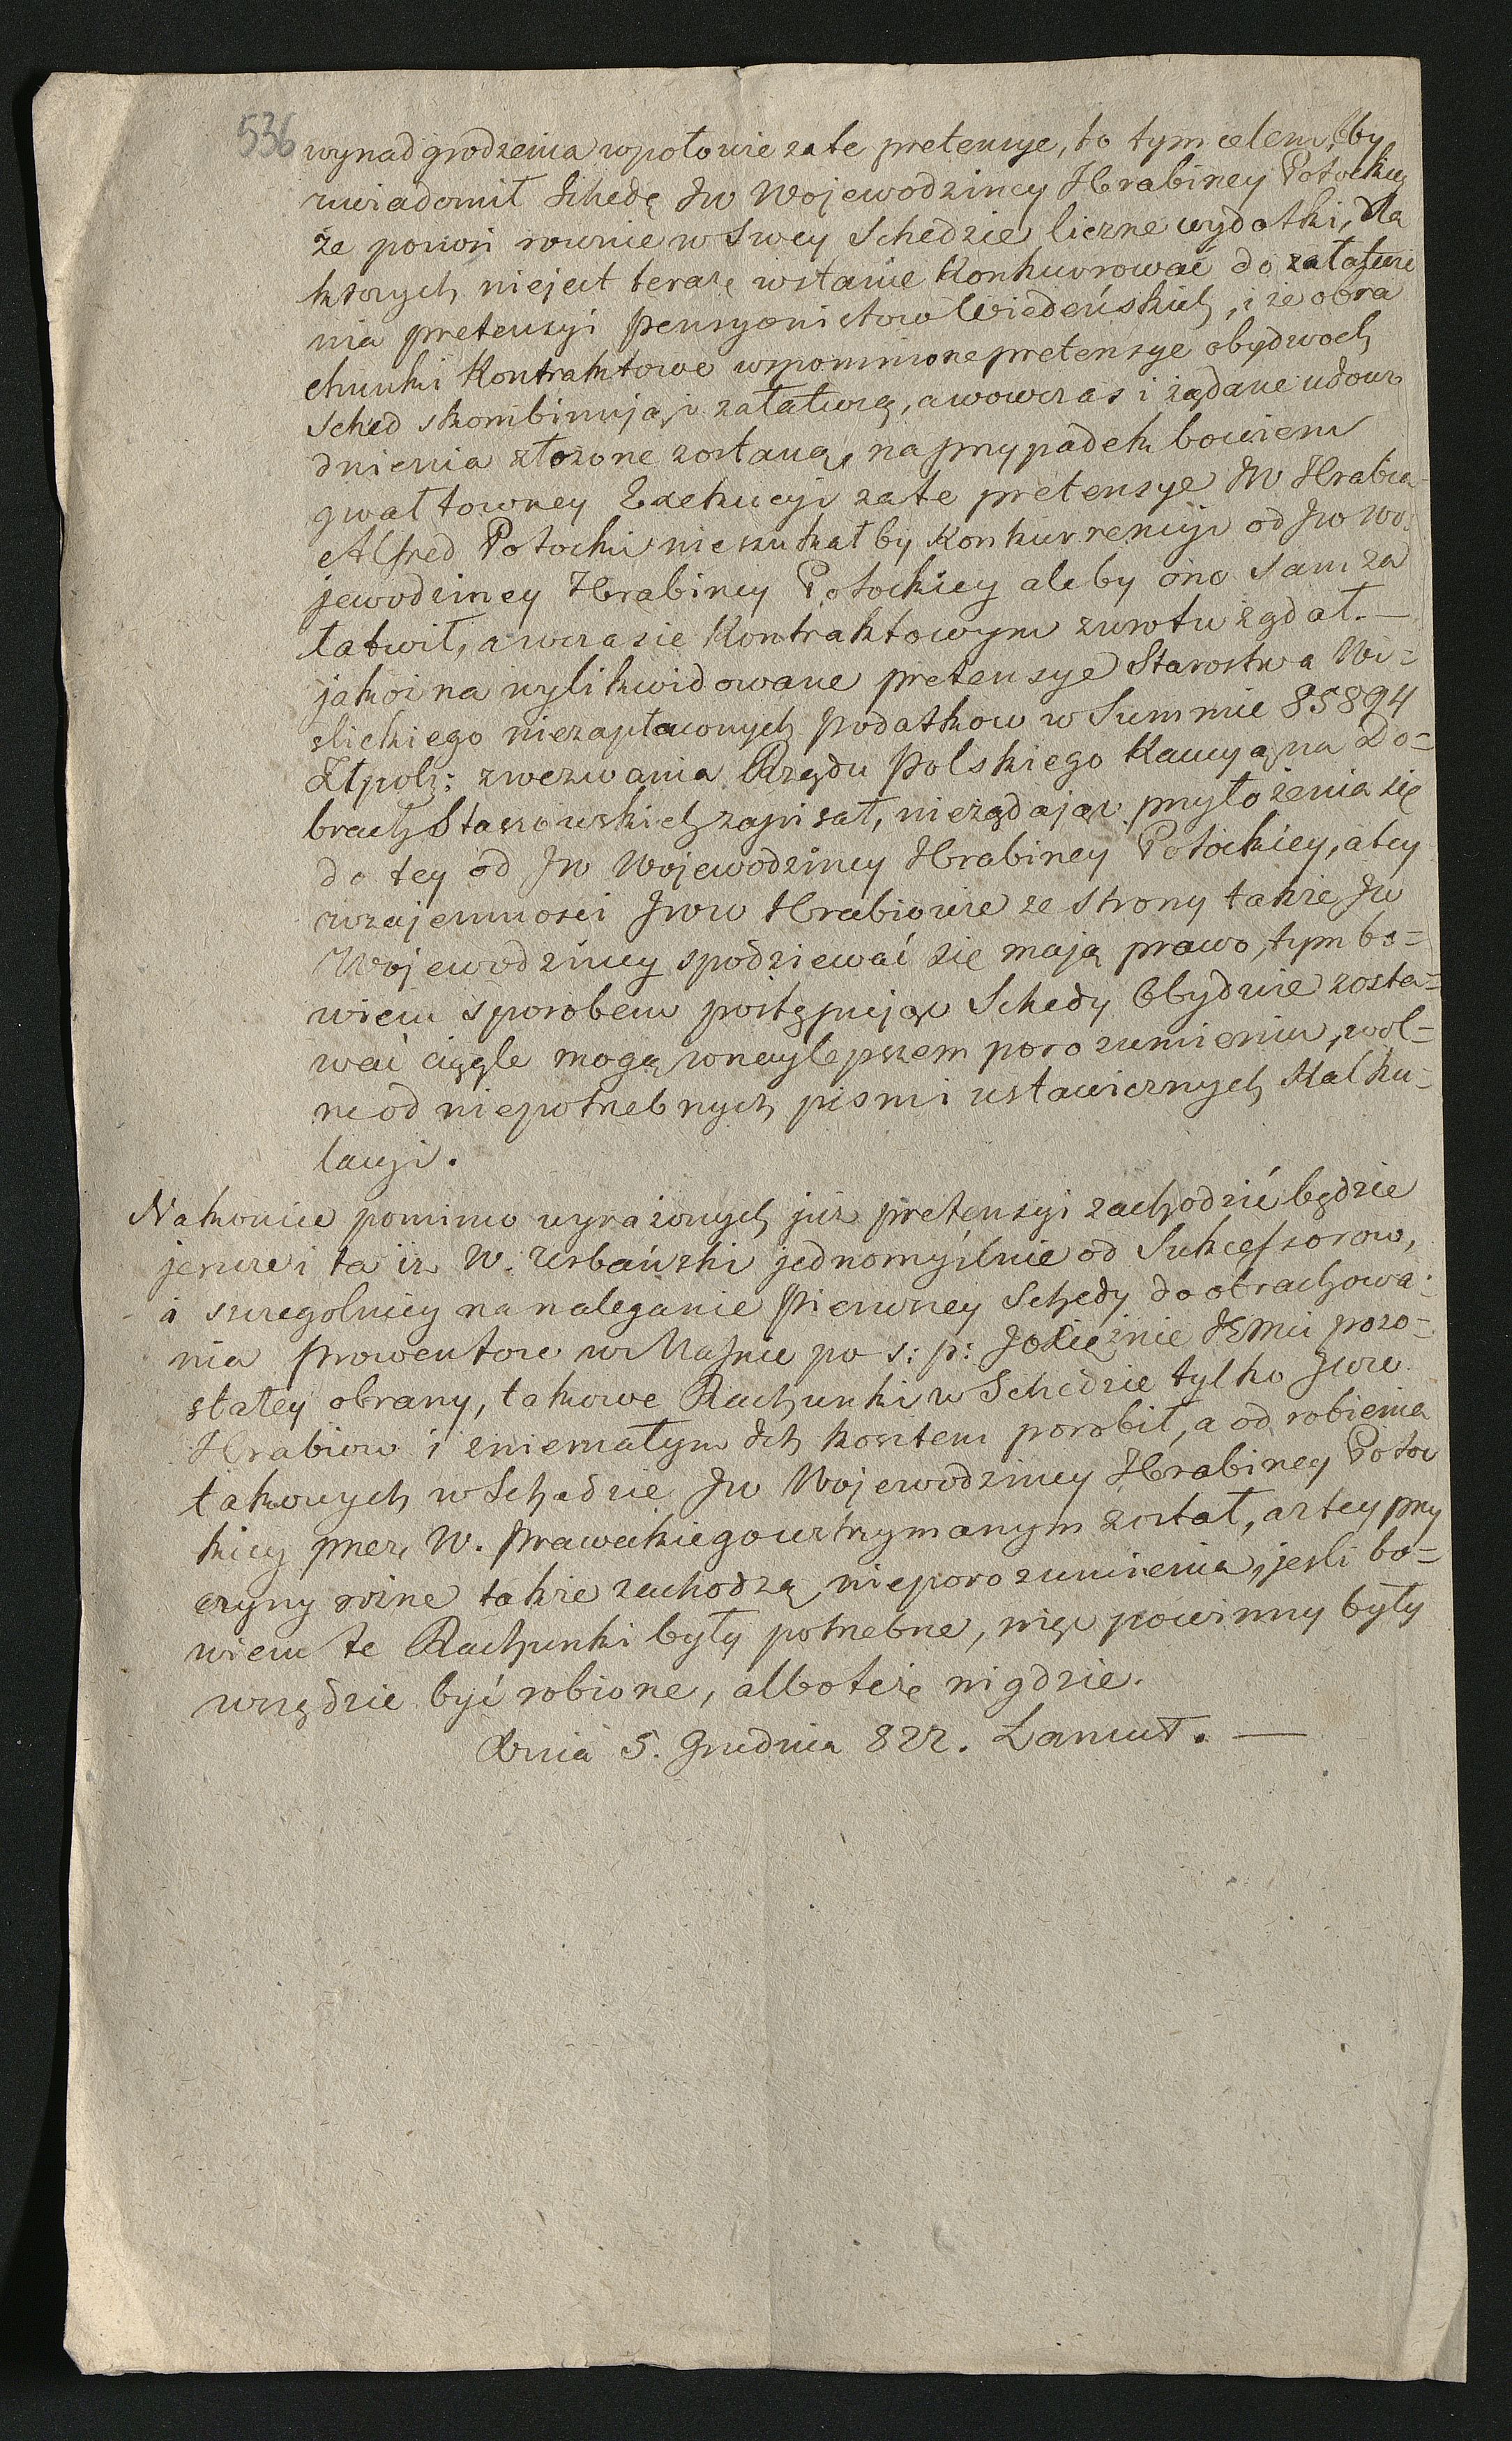 536
wynadgrodzenia wpołowie zate pretensye, to tym celem, by
zwiadomił Schedę Jw Wojewodziney Hrabiney Potockiey
że ponosi rownie w Swey Schedzie liczne wydatki, dla
ktorych niejest teraz wstanie Konkurrować do załatwie
nia pretensyi pensyonistow Wiedeńskich, i że obra
chunki Kontraktowe wspomnione pretensye obydwoch
Sched skombinują i załatwią, awowczas i żądane udowo
dnienia złożone zostaną, na przypadek bowiem
gwałtowney Exekucyi zate pretensye JW Hrabia
Alfred Potocki nieszukałby Konkurrencyi od Jw Wo-
jewodziney Hrabiney Potockiey aleby ono sam za
łatwił, awczasie Kontraktowym zwrotu żądał. —
jakoi na wylikwidowane pretensye Starostwa Wi=
slickiego niezapłaconych podatkow w Summie 85894
Złpols: zwezwania Rządu Polskiego Kaucyą na Do=
brach Staszowskich zapisał, nieżądając przyłożenia się
do tey od Jw Wojewodziney Hrabiney Potockiey, atey
wzajemności Jww Hrabiowie ze strony także Jw
Wojewodziney spodziewać się mają prawo, tym bo=
wiem sposobem postępując Schedy Obydwie zosta=
wać ciągle mogą wnaylepszem porozumieniu, wol=
ne od niepotrzebnych pism i ustawicznych Kalku=
lacyi.
Nakoniec pomimo wyrażonych już pretensyi zachodzić będzie
jeszcze i ta iż W. Urbański jednomyślnie od Sukcessorow,
a szczegolniey na naleganie Pierwszey Schedy do obrachowa-
nia Prowentow w Massie po s: p: JOXiężnie JEMci pozo=
stałey obrany, takowe Rachunki w Schedzie tylko Jww
Hrabiow i zniemałym Ich kosztem porobił, a od robienia
takowych w Schedzie Jw Wojewodziney Hrabiney Potoc
kiey przez W. Praweckiego wstrzymanym został, aztey przy
czyny rożne także zachodzą nieporozumienia, jesli bo=
wiem te Rachunki były potrzebne, więc powinny były
wszędzie być robione, alboteż nigdzie.
Dnia 5. Grudnia 822. Łancut. —